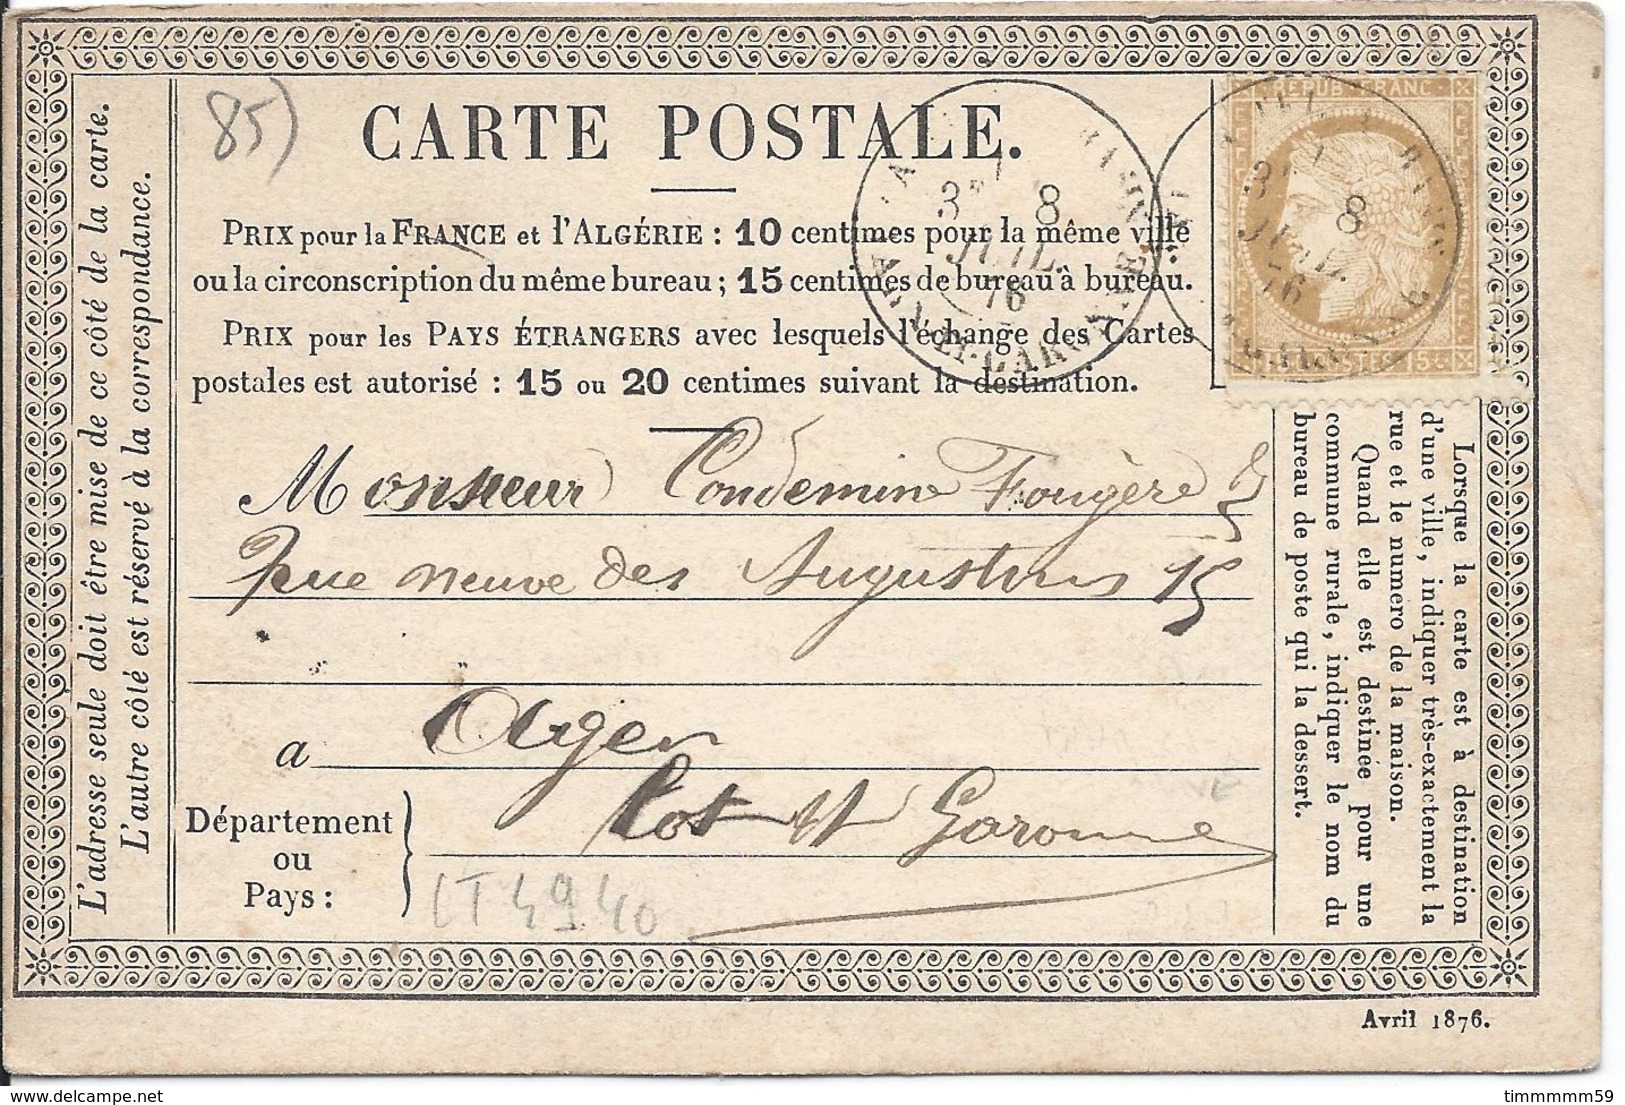 85)
CARTE POSTALE.
PRIX pour la FRANCE et l'ALGÉRIE : 10 centimes pour la même ville
ou la circonscription du même bureau ; 15 centimes de bureau à bureau.
PRIX pour les PAYS ÉTRANGERS avec lesquels l'échange des Cartes
postales est autorisé : 15 ou 20 centimes suivant la destination.
8
JUIL.
76
REPUB FRANC
8
76
POSTES 15c
Monsieur Condemine Fougère
Rue neuve des Augustins 15
a Agen
Département
ou
Pays :
Lot et Garonne
L'adresse seule doit être mise de ce côté de la carte.
L'autre côté est réservé à la correspondance.
Lorsque la carte est à destination
d'une ville, indiquer très-exactement la
rue et le numéro de la maison.
Quand elle est destinée pour une
commune rurale, indiquer le nom du
bureau de poste qui la dessert.
Avril 1876.
timmmmm59